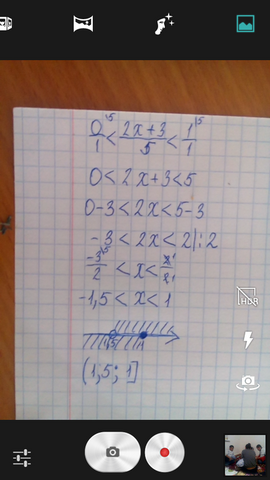 0/1 |·5 < (2x+3)/5 < 1/1 |·5
0<2x+3<5
0-3<2x<5-3
-3<2x<2 |:2
-3/2 <x< 2/2
-1,5<x<1
(1,5; 1]
HDR